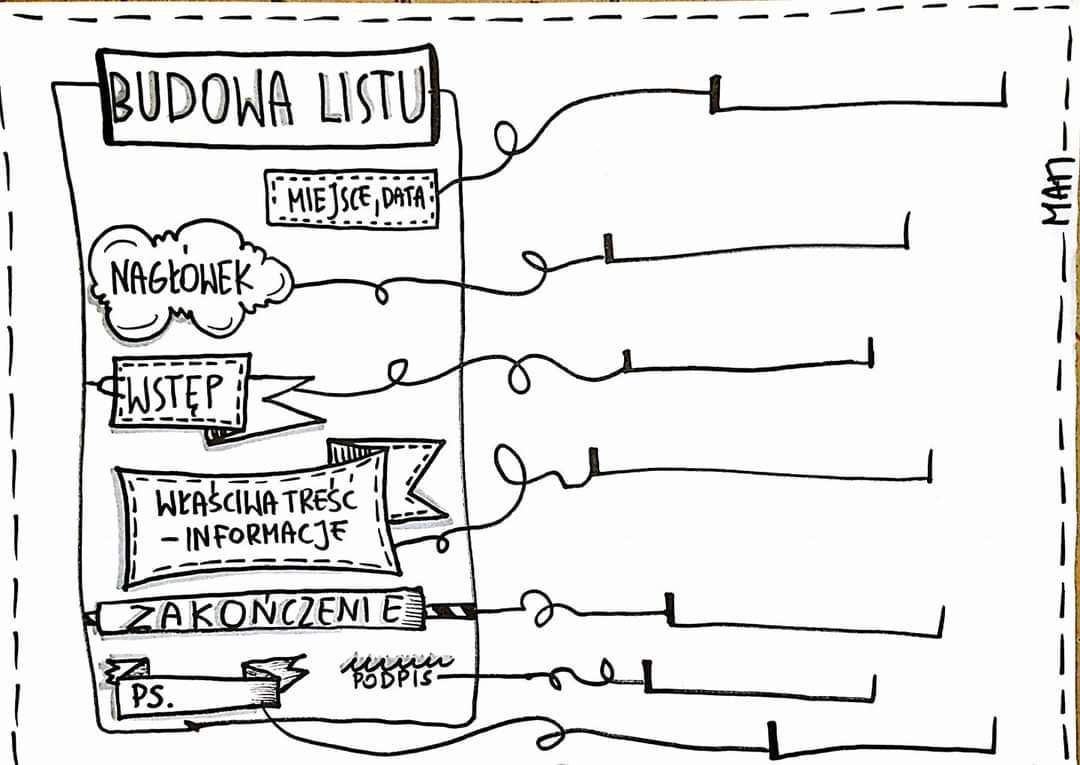 BUDOWA LISTU
MIEJSCE, DATA
NAGŁÓWEK
WSTĘP
WŁAŚCIWA TREŚĆ
- INFORMACJE
ZAKOŃCZENIE
PODPIS
PS.
MAN